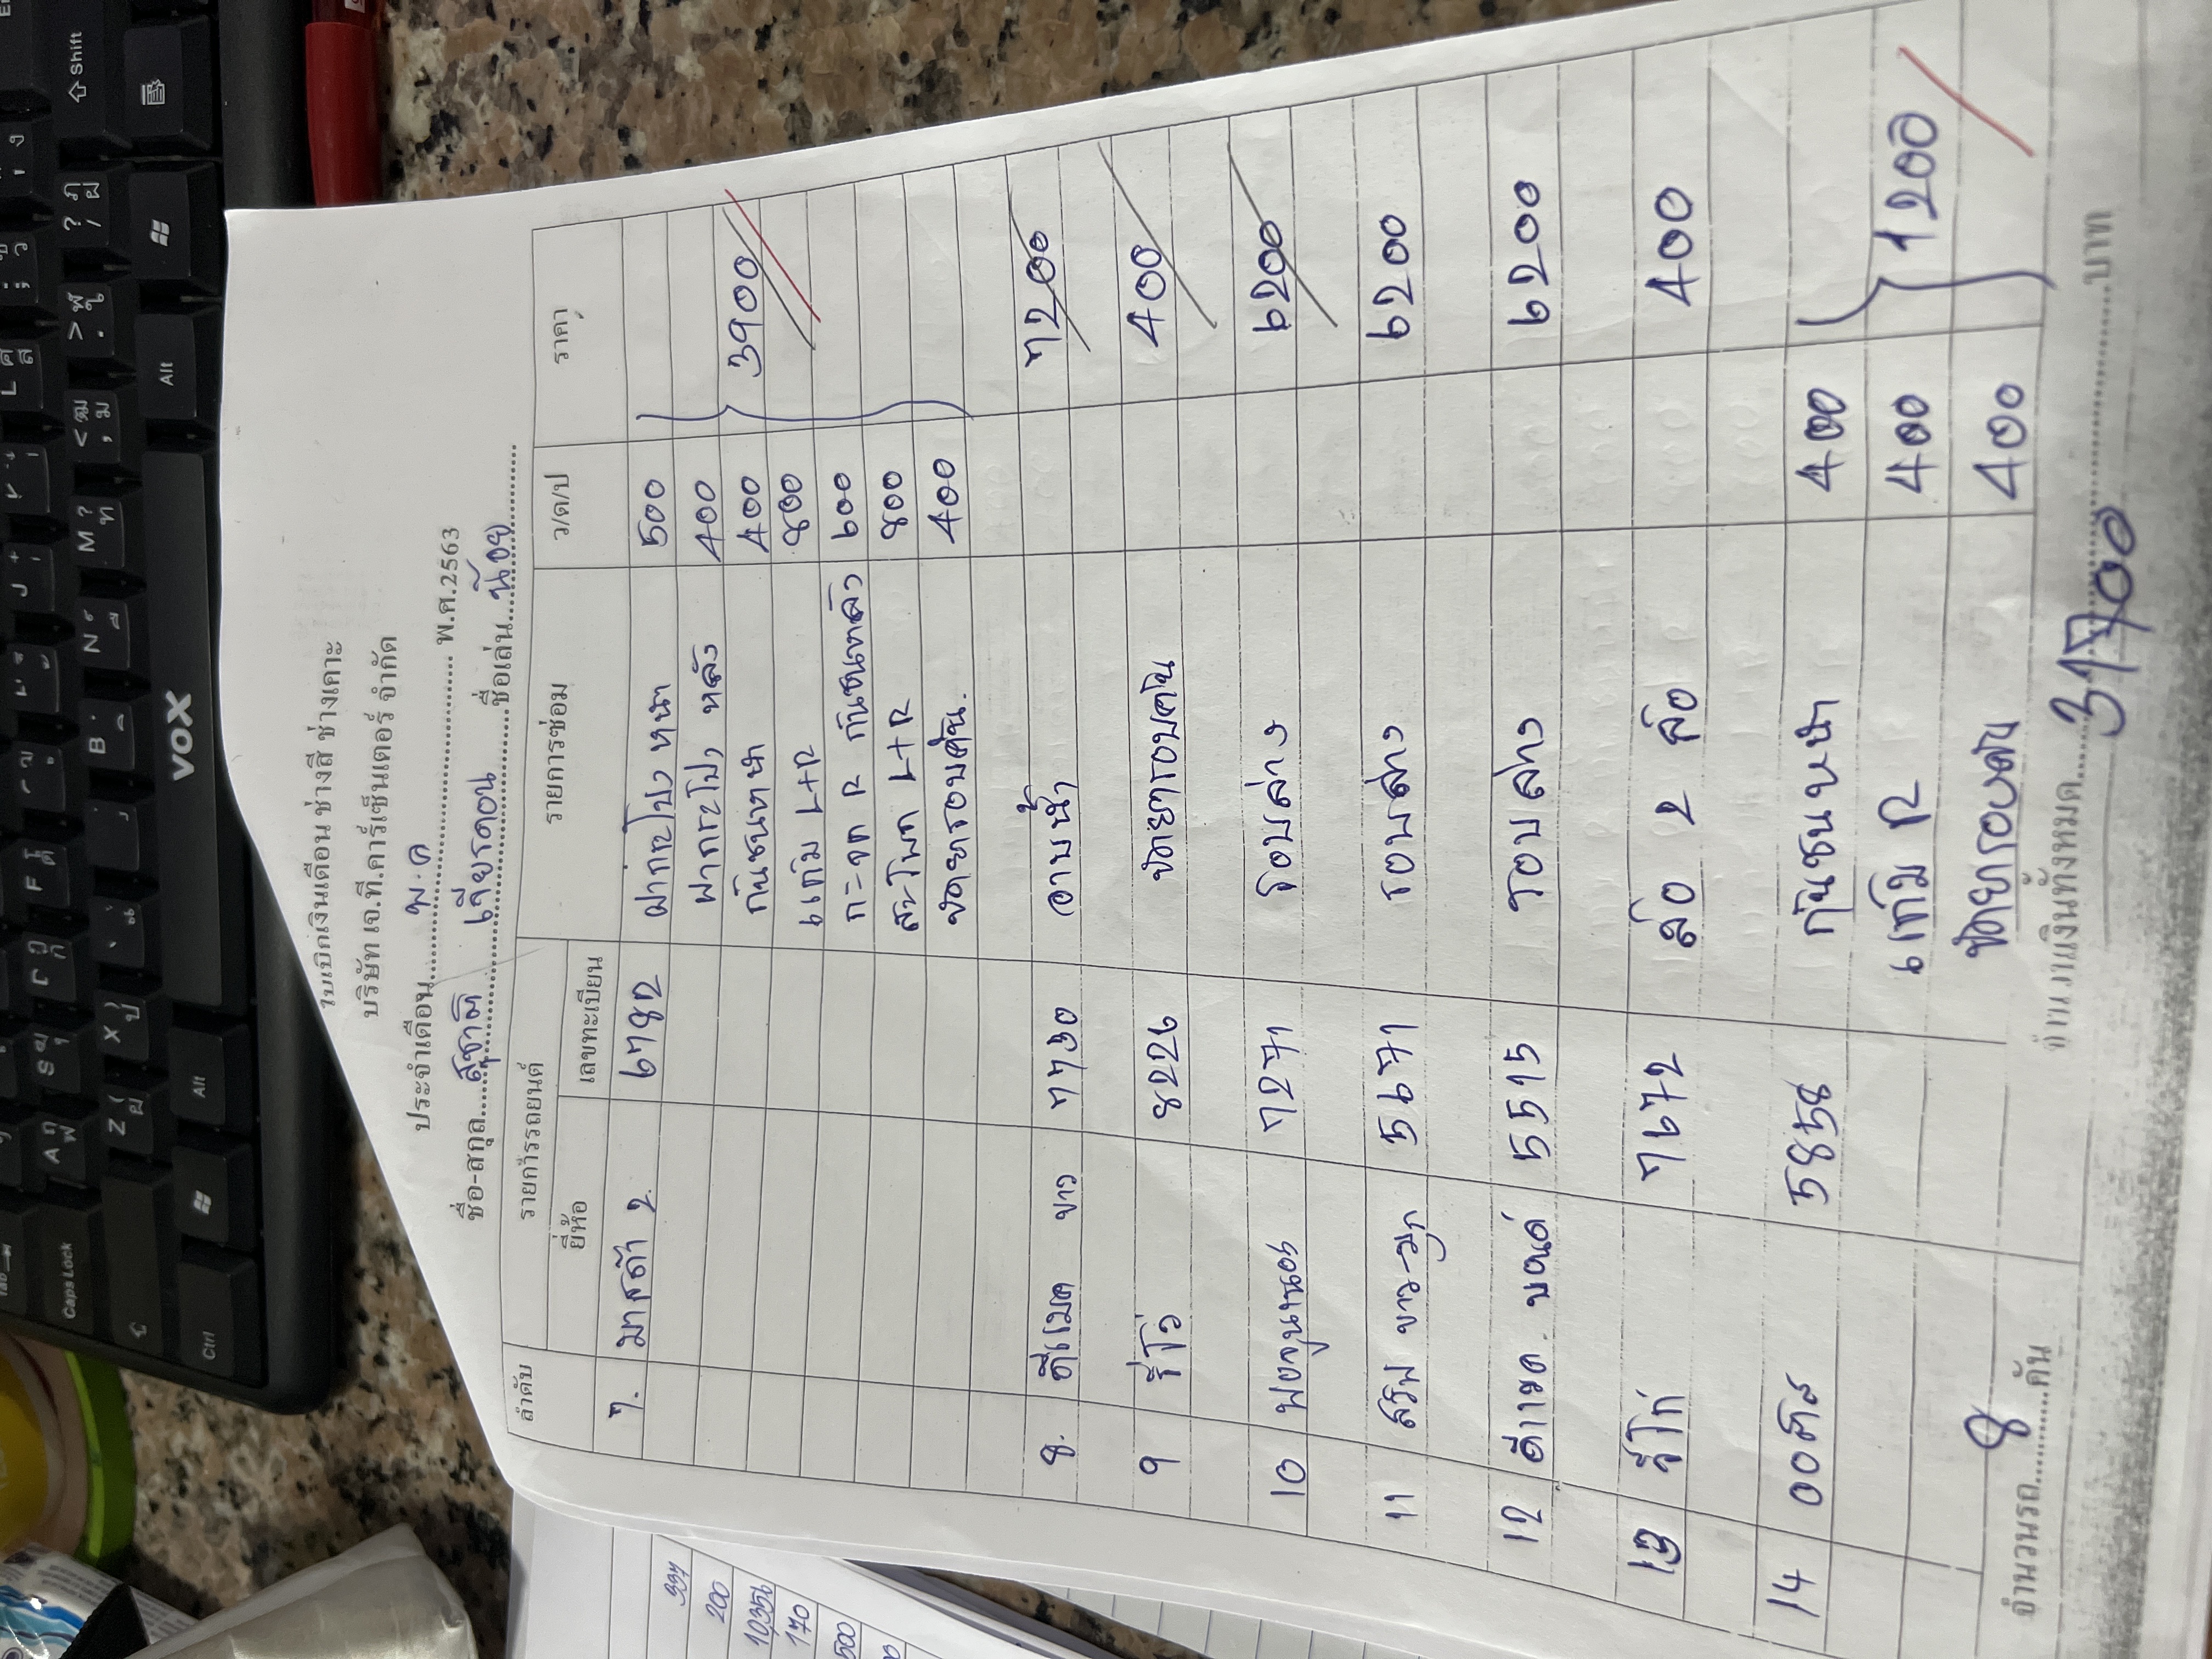 ใบเบิกเงินเดือน ช่างสี ช่างเคาะ
บริษัท เจ.ที.คาร์เซ็นเตอร์ จำกัด
ประจำเดือน พ.ค พ.ศ.2563
ชื่อ-สกุล สุชาติ เจียรดอน ชื่อเล่น น้อย
ลำดับ รายการรถยนต์ รายการซ่อม ว/ด/ป ราคา
ยี่ห้อ เลขทะเบียน
7. มาสด้า 2 6782 ฝากระโปรง หน้า 500
ฝากระโปรง หลัง 400
กันชนหน้า 400 3900
แก้ม L+R 800
กระจก R กันชนหลัง 600
สะโพก L+R 800
ขัดยารอบคัน. 400
8. ดีแมค ขาว 7730 อาบน้ำ 7200
9 รีโว่ 8226 ขัดยารอบคัน 400
10 ฟอจูนเนอร์ 7271 รอบล่าง 6200
11 สวิฟ ขาว-มุก 5671 รอบล่าง 6200
12 ดีแมค บอนด์ 5515 รอบล่าง 6200
13 วีโก้ 7672 ล้อ 2 ล้อ 400
14 ออติส 5858 กันชนหน้า 400
แก้ม R 400 1200
ขัดยารอบคัน 400
จำนวนรถ 8 คัน จำนวนเงินทั้งหมด 31700 บาท
334
200
10356
170
500
VOX
Shift
Alt
Caps Lock
Ctrl
Alt